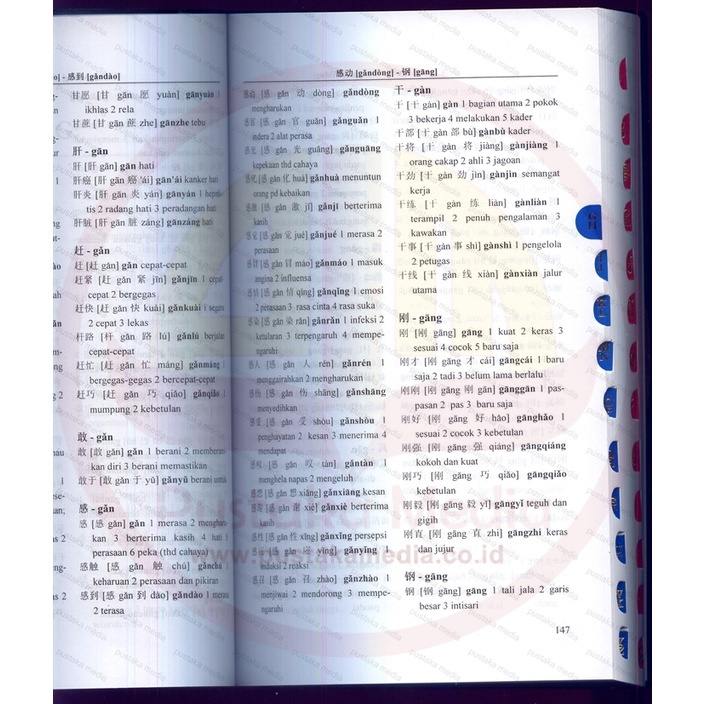 感到 [gǎndào]
甘愿 [甘 gān 愿 yuàn] gānyuàn 1
ikhlas 2 rela
甘蔗 [甘 gān 蔗 zhe] gānzhe tebu
肝 - gān
肝 [肝 gān] gān hati
肝癌 [肝 gān 癌 'ái] gān'ái kanker hati
肝炎 [肝 gān 炎 yán] gānyán 1 hepati-
tis 2 radang hati 3 peradangan hati
肝脏 [肝 gān 脏 zàng] gānzàng hati
赶 - gǎn
赶 [赶 gǎn] gǎn cepat-cepat
赶紧 [赶 gǎn 紧 jǐn] gǎnjǐn 1 cepat-
cepat 2 bergegas
赶快 [赶 gǎn 快 kuài] gǎnkuài 1 segera
2 cepat 3 lekas
cepat-cepat
赶忙 [赶 gǎn 忙 máng] gǎnmáng 1
bergegas-gegas 2 bercepat-cepat
赶巧 [赶 gǎn 巧 qiǎo] gǎnqiǎo 1
mumpung 2 kebetulan
敢 - gǎn
敢 [敢 gǎn] gǎn 1 berani 2 memberan-
kan diri 3 berani memastikan
敢于 [敢 gǎn 于 yú] gǎnyú berani untuk
感 - gǎn
感 [感 gǎn] gǎn 1 merasa 2 menghan-
kan 3 berterima kasih 4 hati
perasaan 6 peka (thd cahaya)
感触 [感 gǎn 触 chù] gǎnchù
keharuan 2 perasaan dan pikiran
感到 [感 gǎn 到 dào] gǎndào 1 merasa
2 terasa
感动 [gǎndòng] - 钢 [gāng]
感动 [感 gǎn 动 dòng] gǎndòng
mengharukan
感官 [感 gǎn 官 guān] gǎnguān 1
indera 2 alat perasa
感光 [感 gǎn 光 guāng] gǎnguāng
kepekaan thd cahaya
感化 [感 gǎn 化 huà] gǎnhuà menuntun
orang pd kebaikan
感激 [感 gǎn 激 jī] gǎnjī berterima
kasih
感觉 [感 gǎn 觉 jué] gǎnjué 1 merasa 2
perasaan
感冒 [感 gǎn 冒 mào] gǎnmào 1 masuk
angina 2 influensa
感情 [感 gǎn 情 qíng] gǎnqíng 1 emosi
2 perasaan 3 rasa cinta 4 rasa suka
感染 [感 gǎn 染 rǎn] gǎnrǎn 1 infeksi 2
ketularan 3 terpengaruh 4 mempe-
ngaruhi
感人 [感 gǎn 人 rén] gǎnrén 1
menggairahkan 2 mengharukan
感伤 [感 gǎn 伤 shāng] gǎnshāng
menyedihkan
感受 [感 gǎn 受 shòu] gǎnshòu 1
penghayatan 2 kesan 3 menerima 4
mendapat
感叹 [感 gǎn 叹 tàn] gǎntàn 1
menghela napas 2 mengeluh
感想 [感 gǎn 想 xiǎng] gǎnxiǎng kesan
感谢 [感 gǎn 谢 xiè] gǎnxiè berterima
kasih
感性 [感 gǎn 性 xìng] gǎnxìng persepsi
感应 [感 gǎn 应 yìng] gǎnyìng 1
induksi 2 reaksi
感召 [感 gǎn 召 zhào] gǎnzhào 1
menjiwai 2 mendorong 3 mempe-
ngaruhi
干 - gàn
干 [干 gàn] gàn 1 bagian utama 2 pokok
3 bekerja 4 melakukan 5 kader
干部 [干 gàn 部 bù] gànbù kader
干将 [干 gàn 将 jiàng] gànjiàng 1
orang cakap 2 ahli 3 jagoan
干劲 [干 gàn 劲 jìn] gànjìn semangat
kerja
干练 [干 gàn 练 liàn] gànliàn 1
terampil 2 penuh pengalaman 3
kawakan
干事 [干 gàn 事 shì] gànshì 1 pengelola
2 petugas
干线 [干 gàn 线 xiàn] gànxiàn jalur
utama
刚 - gāng
刚 [刚 gāng] gāng 1 kuat 2 keras 3
sesuai 4 cocok 5 baru saja
刚才 [刚 gāng 才 cái] gāngcái 1 baru
saja 2 tadi 3 belum lama berlalu
刚刚 [刚 gāng 刚 gāng] gānggāng 1 pas-
pasan 2 pas 3 baru saja
刚好 [刚 gāng 好 hǎo] gānghǎo 1
sesuai 2 cocok 3 kebetulan
刚强 [刚 gāng 强 qiáng] gāngqiáng
kokoh dan kuat
刚巧 [刚 gāng 巧 qiǎo] gāngqiǎo
kebetulan
刚毅 [刚 gāng 毅 yì] gāngyì teguh dan
gigih
刚直 [刚 gāng 直 zhí] gāngzhí keras
dan jujur
钢 - gāng
钢 [钢 gāng] gāng 1 tali jala 2 garis
besar 3 intisari
147
Pustaka Media
www.pustakamedia.co.id